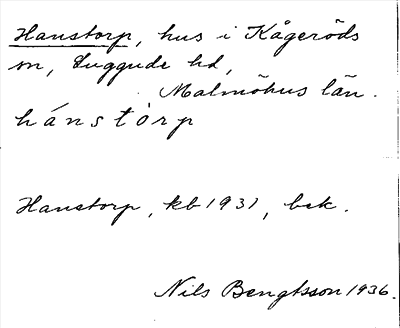 Hanstorp, hus i Kågeröds
sn, Luggude hd,
Malmöhus län.
hánstòrp
Hanstorp, kb 1931, bek.
Nils Bengtsson 1936.